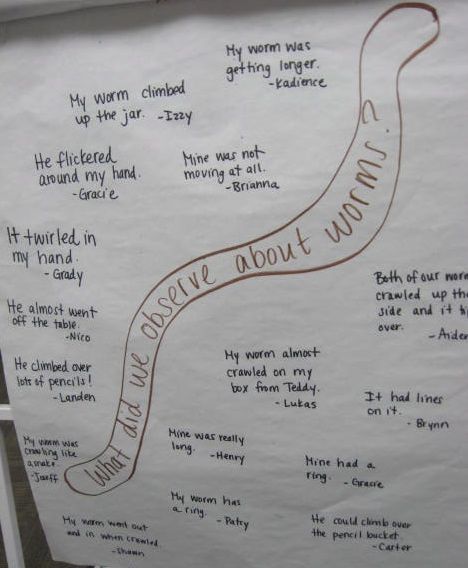 My worm was
getting longer.
-Kadience
My worm climbed
up the jar. -Izzy
He flickered
around my hand.
-Gracie
Mine was not
moving at all.
-Brianna
It twirled in
my hand.
- Grady
He almost went
off the table.
-Nico
He climbed over
lots of pencils!
- Landen
What did we observe about worms?
Both of our
crawled up
side and it
over.
My worm almost
crawled on my
box from Teddy.
- Lukas
It had lines
on it.
- Brynn
My worm was
crawling like
a snake.
Mine was really
long. - Henry
Mine had a
ring. - Gracie
My worm has
a ring. - Patry
My worm went out
and in when crawled.
- Shawn
He could climb over
the pencil bucket.
- Carter